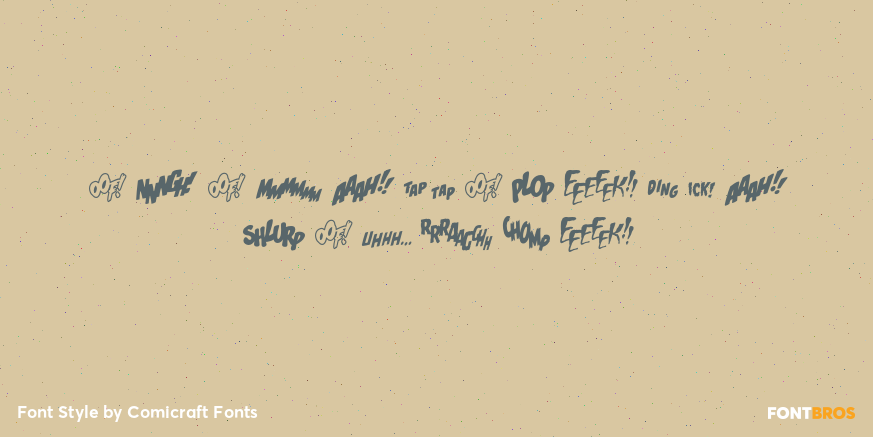 OOF! NNNGH! OOF! MMMMMM AAAH!! TAP TAP OOF! PLOP EEEEEK!! DING ICK! AAAH!!
SHLURP OOF! UHHH... RRRAAGGHH CHOMP EEEEEK!!
Font Style by Comicraft Fonts
FONTBROS